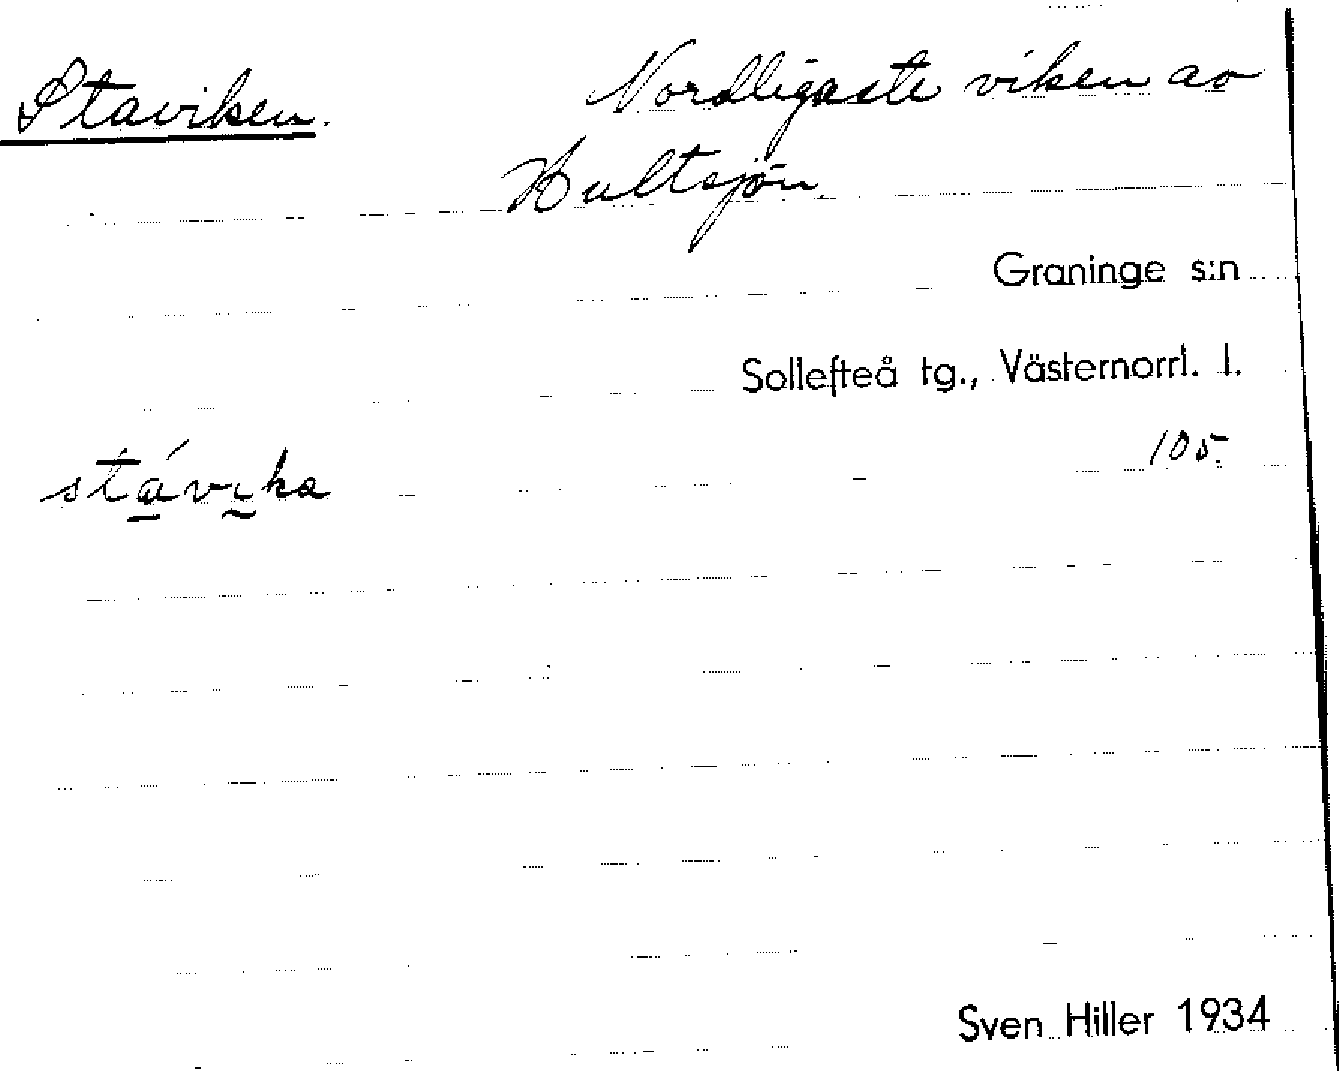 Staviken. Nordligaste viken av
Hultsjön.
Graninge s:n
Sollefteå tg., Västernorrl. l.
105.
stávika
Sven Hiller 1934